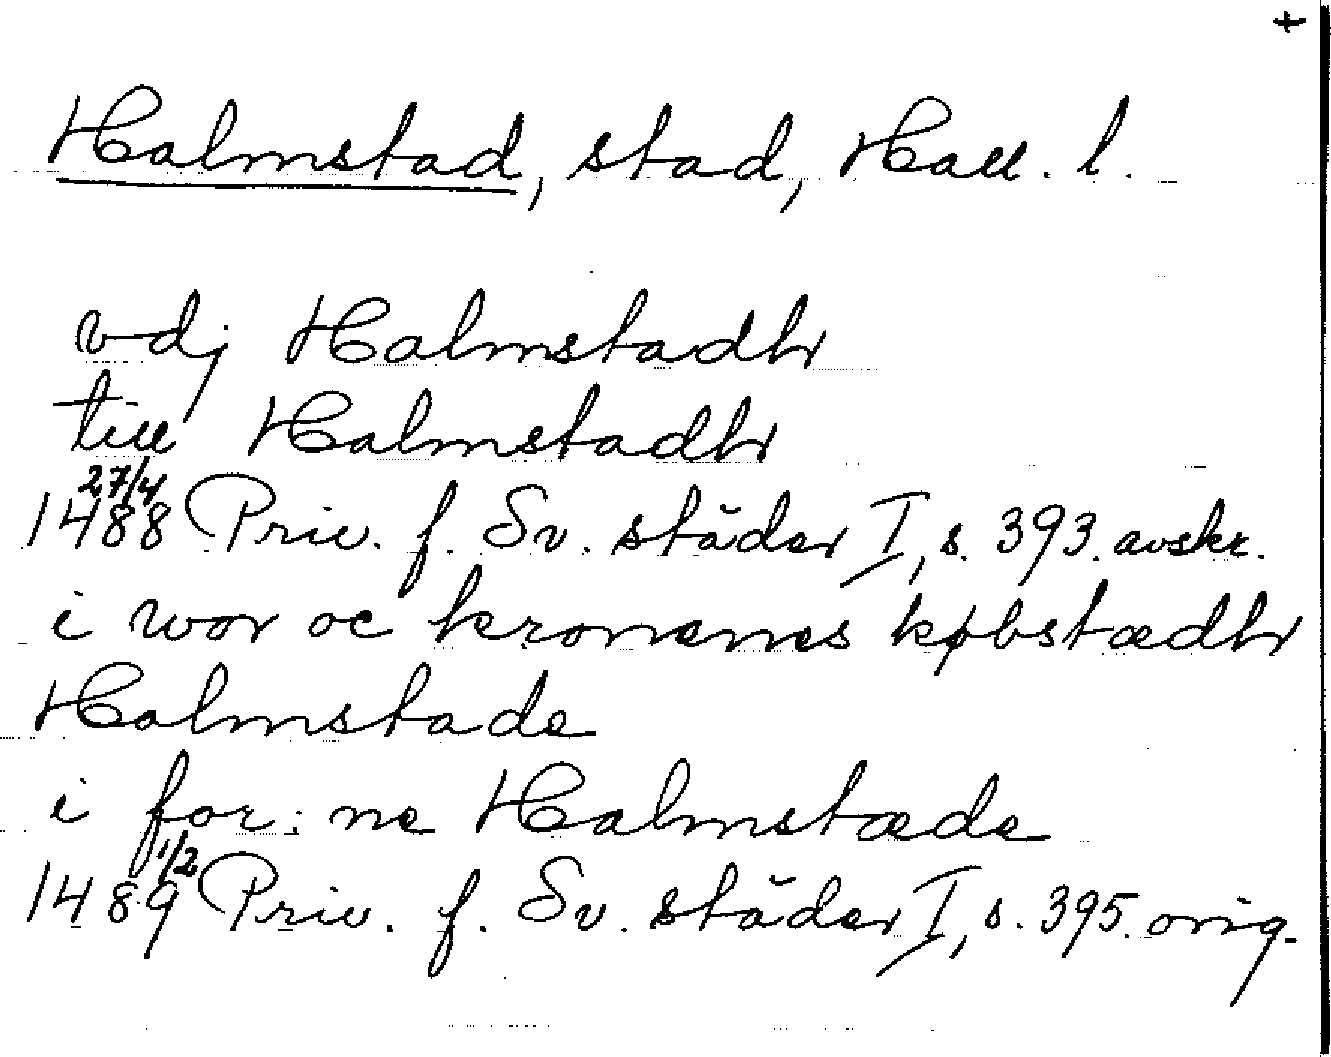 +
Halmstad, stad, Hall. l.
vdj Halmstadh
till Halmstadh
1488 27/4 Priv. f. Sv. städer I, s. 393. avskr.
i wor oc kronenes købstædh
Halmstade
i for: ne Halmstæde
1489 1/2 Priv. f. Sv. städer I, s. 395. orig.